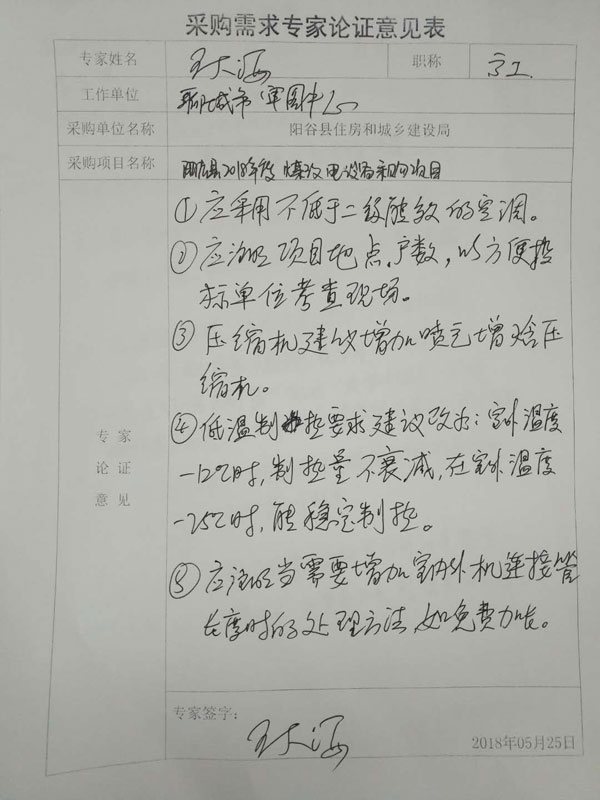 采购需求专家论证意见表
专家姓名 王大海 职称 高工
工作单位 聊城市
采购单位名称 阳谷县住房和城乡建设局
采购项目名称 阳谷县2018年度煤改电设备采购项目
①应采用不低于二级能效的空调。
②应注明项目地点、户数，以方便投
标单位考查现场。
③压缩机建议增加喷气增焓压
缩机。
专家
论证
意见
④低温制热要求建议改为：室外温度
-12℃时，制热量不衰减，在室外温度
-25℃时，能稳定制热。
⑤应注明当需要增加室内外机连接管
长度时的处理方法，如免费加长。
专家签字：
王大海
2018年05月25日